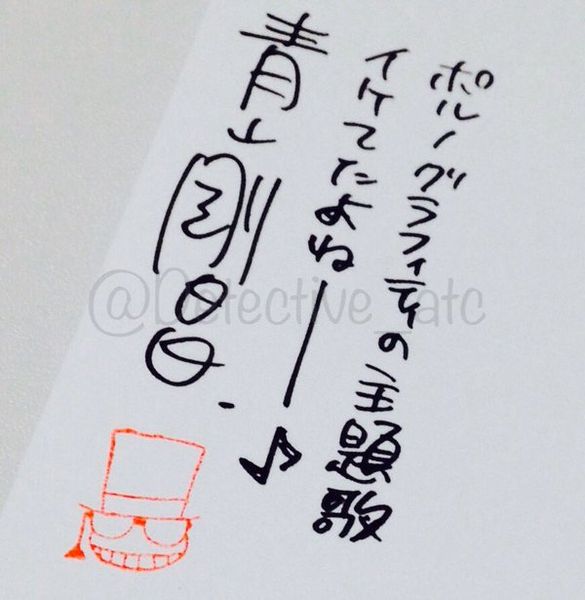 ポルノグラフィティの主題歌
イケてたよね――♪
青山剛昌.
@Detective_atc